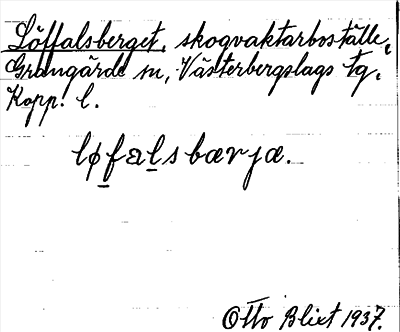 Löffalsberget, skogvaktarboställe,
Grangärde sn, Västerbergslags tg.
Kopp. l.
løfalsbærjæ.
Otto Blixt 1937.